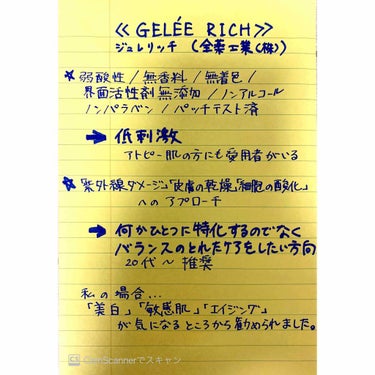 ≪ GELÉE RICH≫
ジュレリッチ (全薬工業(株))
☆ 弱酸性 / 無香料 / 無着色 /
界面活性剤 無添加 / ノンアルコール
ノンパラベン / パッチテスト済
➡ 低刺激
アトピー肌の方にも愛用者がいる
☆ 「紫外線ダメージ」「皮膚の乾燥」「細胞の酸化」
へのアプローチ
➡ 何かひとつに特化するのでなく
バランスのとれたケアをしたい方向
20代〜 推奨
私の場合...
「美白」「敏感肌」「エイジング」
が気になるところから勧められました。
CS CamScannerでスキャン